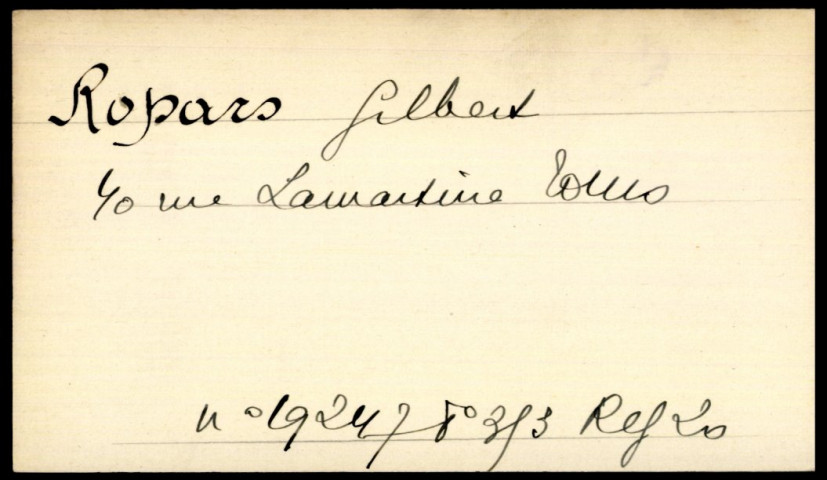 Ropars Gilbert
40 rue Lamartine Tours
n° 19247 f° 393 Reg 20